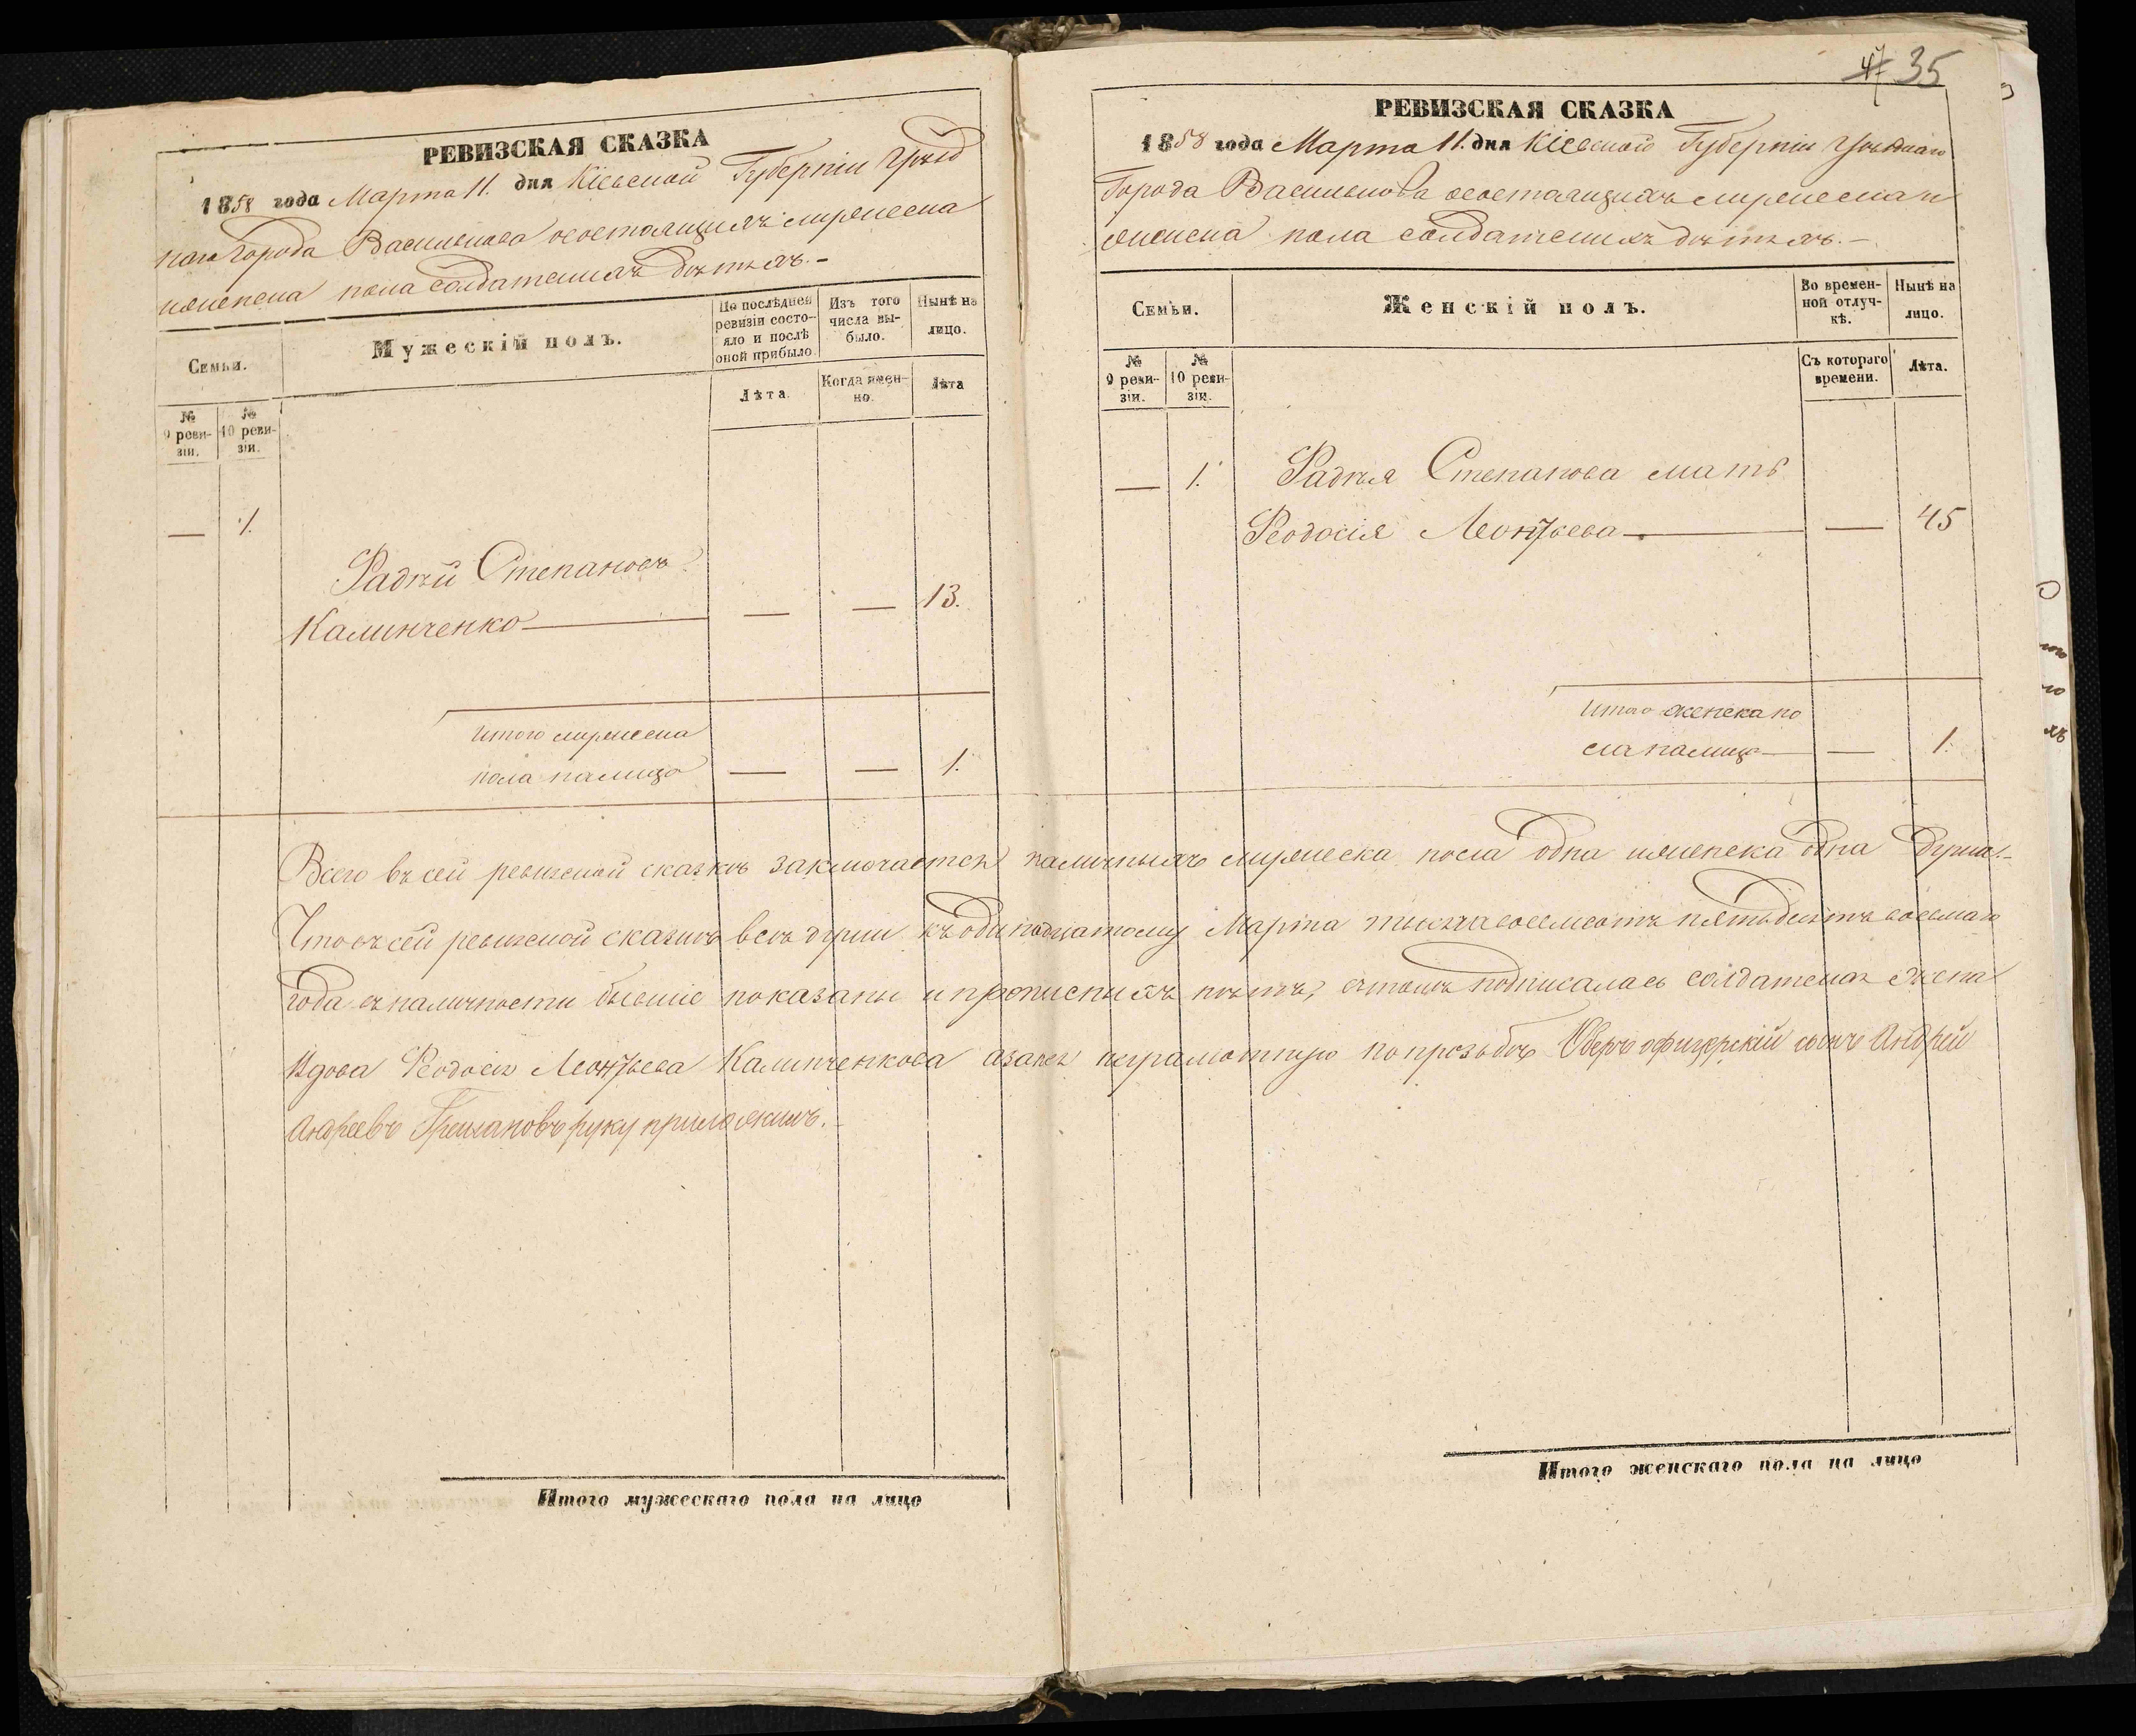 РЕВИЗСКАЯ СКАЗКА
1858 года Марта 11. дня Кіевской Губерніи Уѣзд
наго Города Василькова о состоящихъ мужеска
и женска пола солдатскихъ дѣтяхъ.-
Семьи.
Мужескій полъ.
По послѣдней
ревизіи состо-
яло и послѣ
оной прибыло.
Изъ того
числа вы-
было.
Нынѣ на
лицо.
Лѣта.
Когда имен-
но.
Лѣта
№
9 реви-
зіи.
№
10 реви-
зіи.
— 1.
Фадѣй Степановъ
Калинченко — — — 13.
Итого мужеска
пола на лицо — — 1.
47 35
РЕВИЗСКАЯ СКАЗКА
1858 года Марта 11. дня Кіевской Губерніи Уѣзднаго
Города Василькова о состоящихъ мужеска и
женска пола солдатскихъ дѣтяхъ.-
Семьи.
Женскій полъ.
Во времен-
ной отлуч-
кѣ.
Нынѣ на
лицо.
№
9 реви-
зіи.
№
10 реви-
зіи.
Съ котораго
времени.
Лѣта.
— 1. Фадѣя Степанова мать
Феодосія Леонтьева — — 45
Итого женска по
ла на лицо — — 1.
Всего въ сей ревизской сказкѣ заключается наличныхъ мужеска пола одна и женска одна душа.-
Что въ сей ревизской сказкѣ всѣ души къ одинадцатому Марта тысяча восемсотъ пятьдесятъ восьмаго
года въ наличности бывшіе показаны и прописныхъ нѣтъ, въ томъ подписалась солдатская жена
вдова Феодосія Леонтьева Калинченкова а за нея неграмотную по прозьбѣ Оберъ офицерскій сынъ Андрей
Андреевъ руку приложилъ.
Итого мужескаго пола на лицо
Итого женскаго пола на лицо